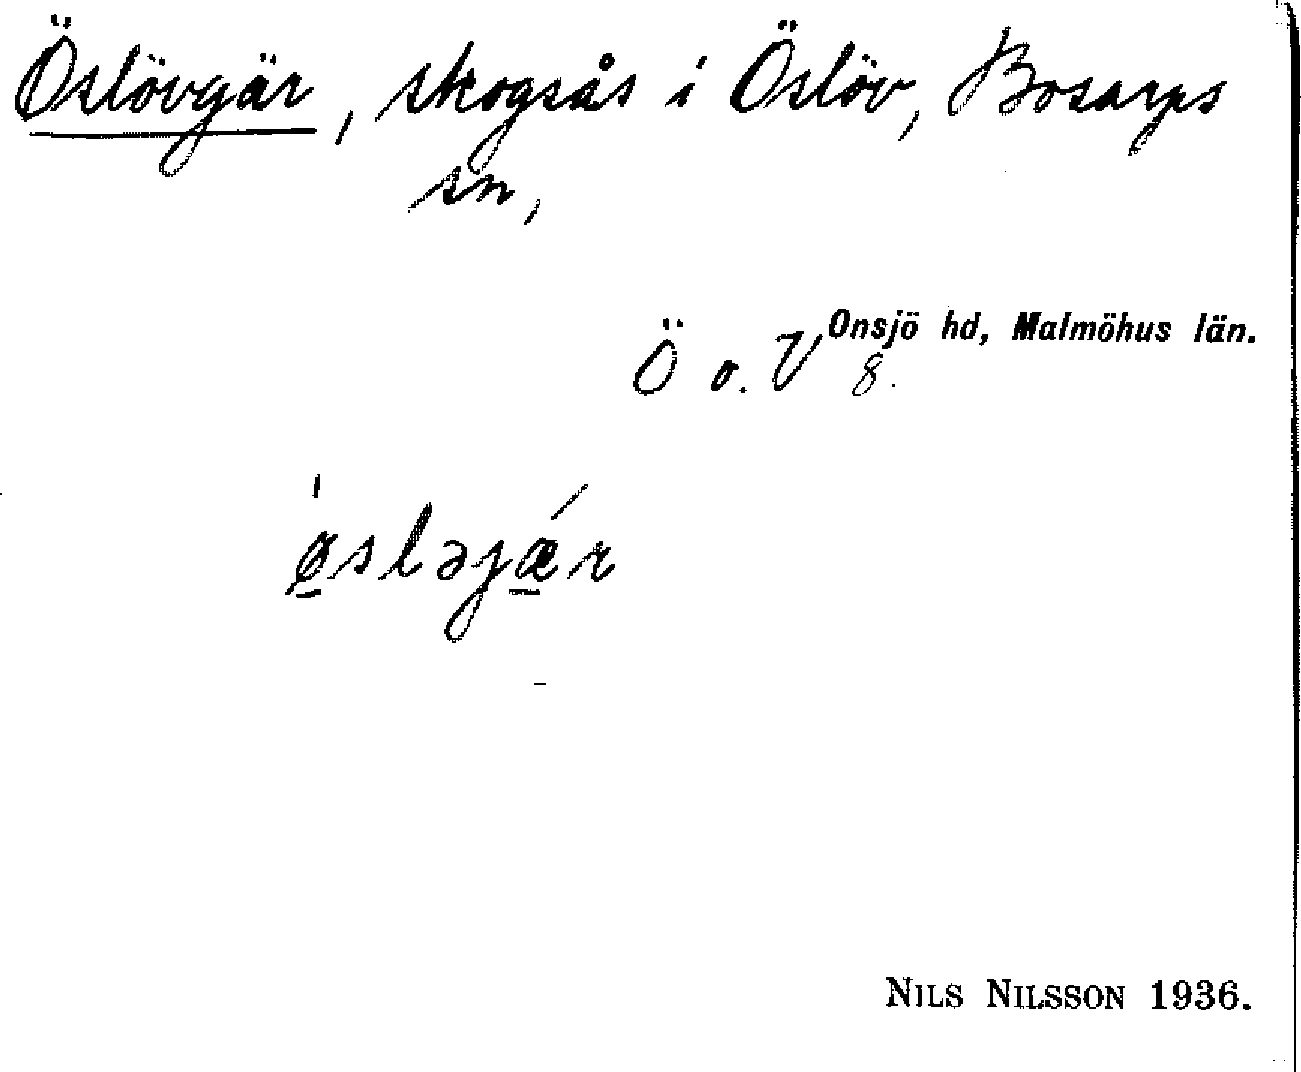 Öslövgär, skogsås i Öslöv, Bosarps
sn,
Onsjö hd, Malmöhus län.
Ö o. V 8.
ǿ̱sləjǽ̱r
NILS NILSSON 1936.